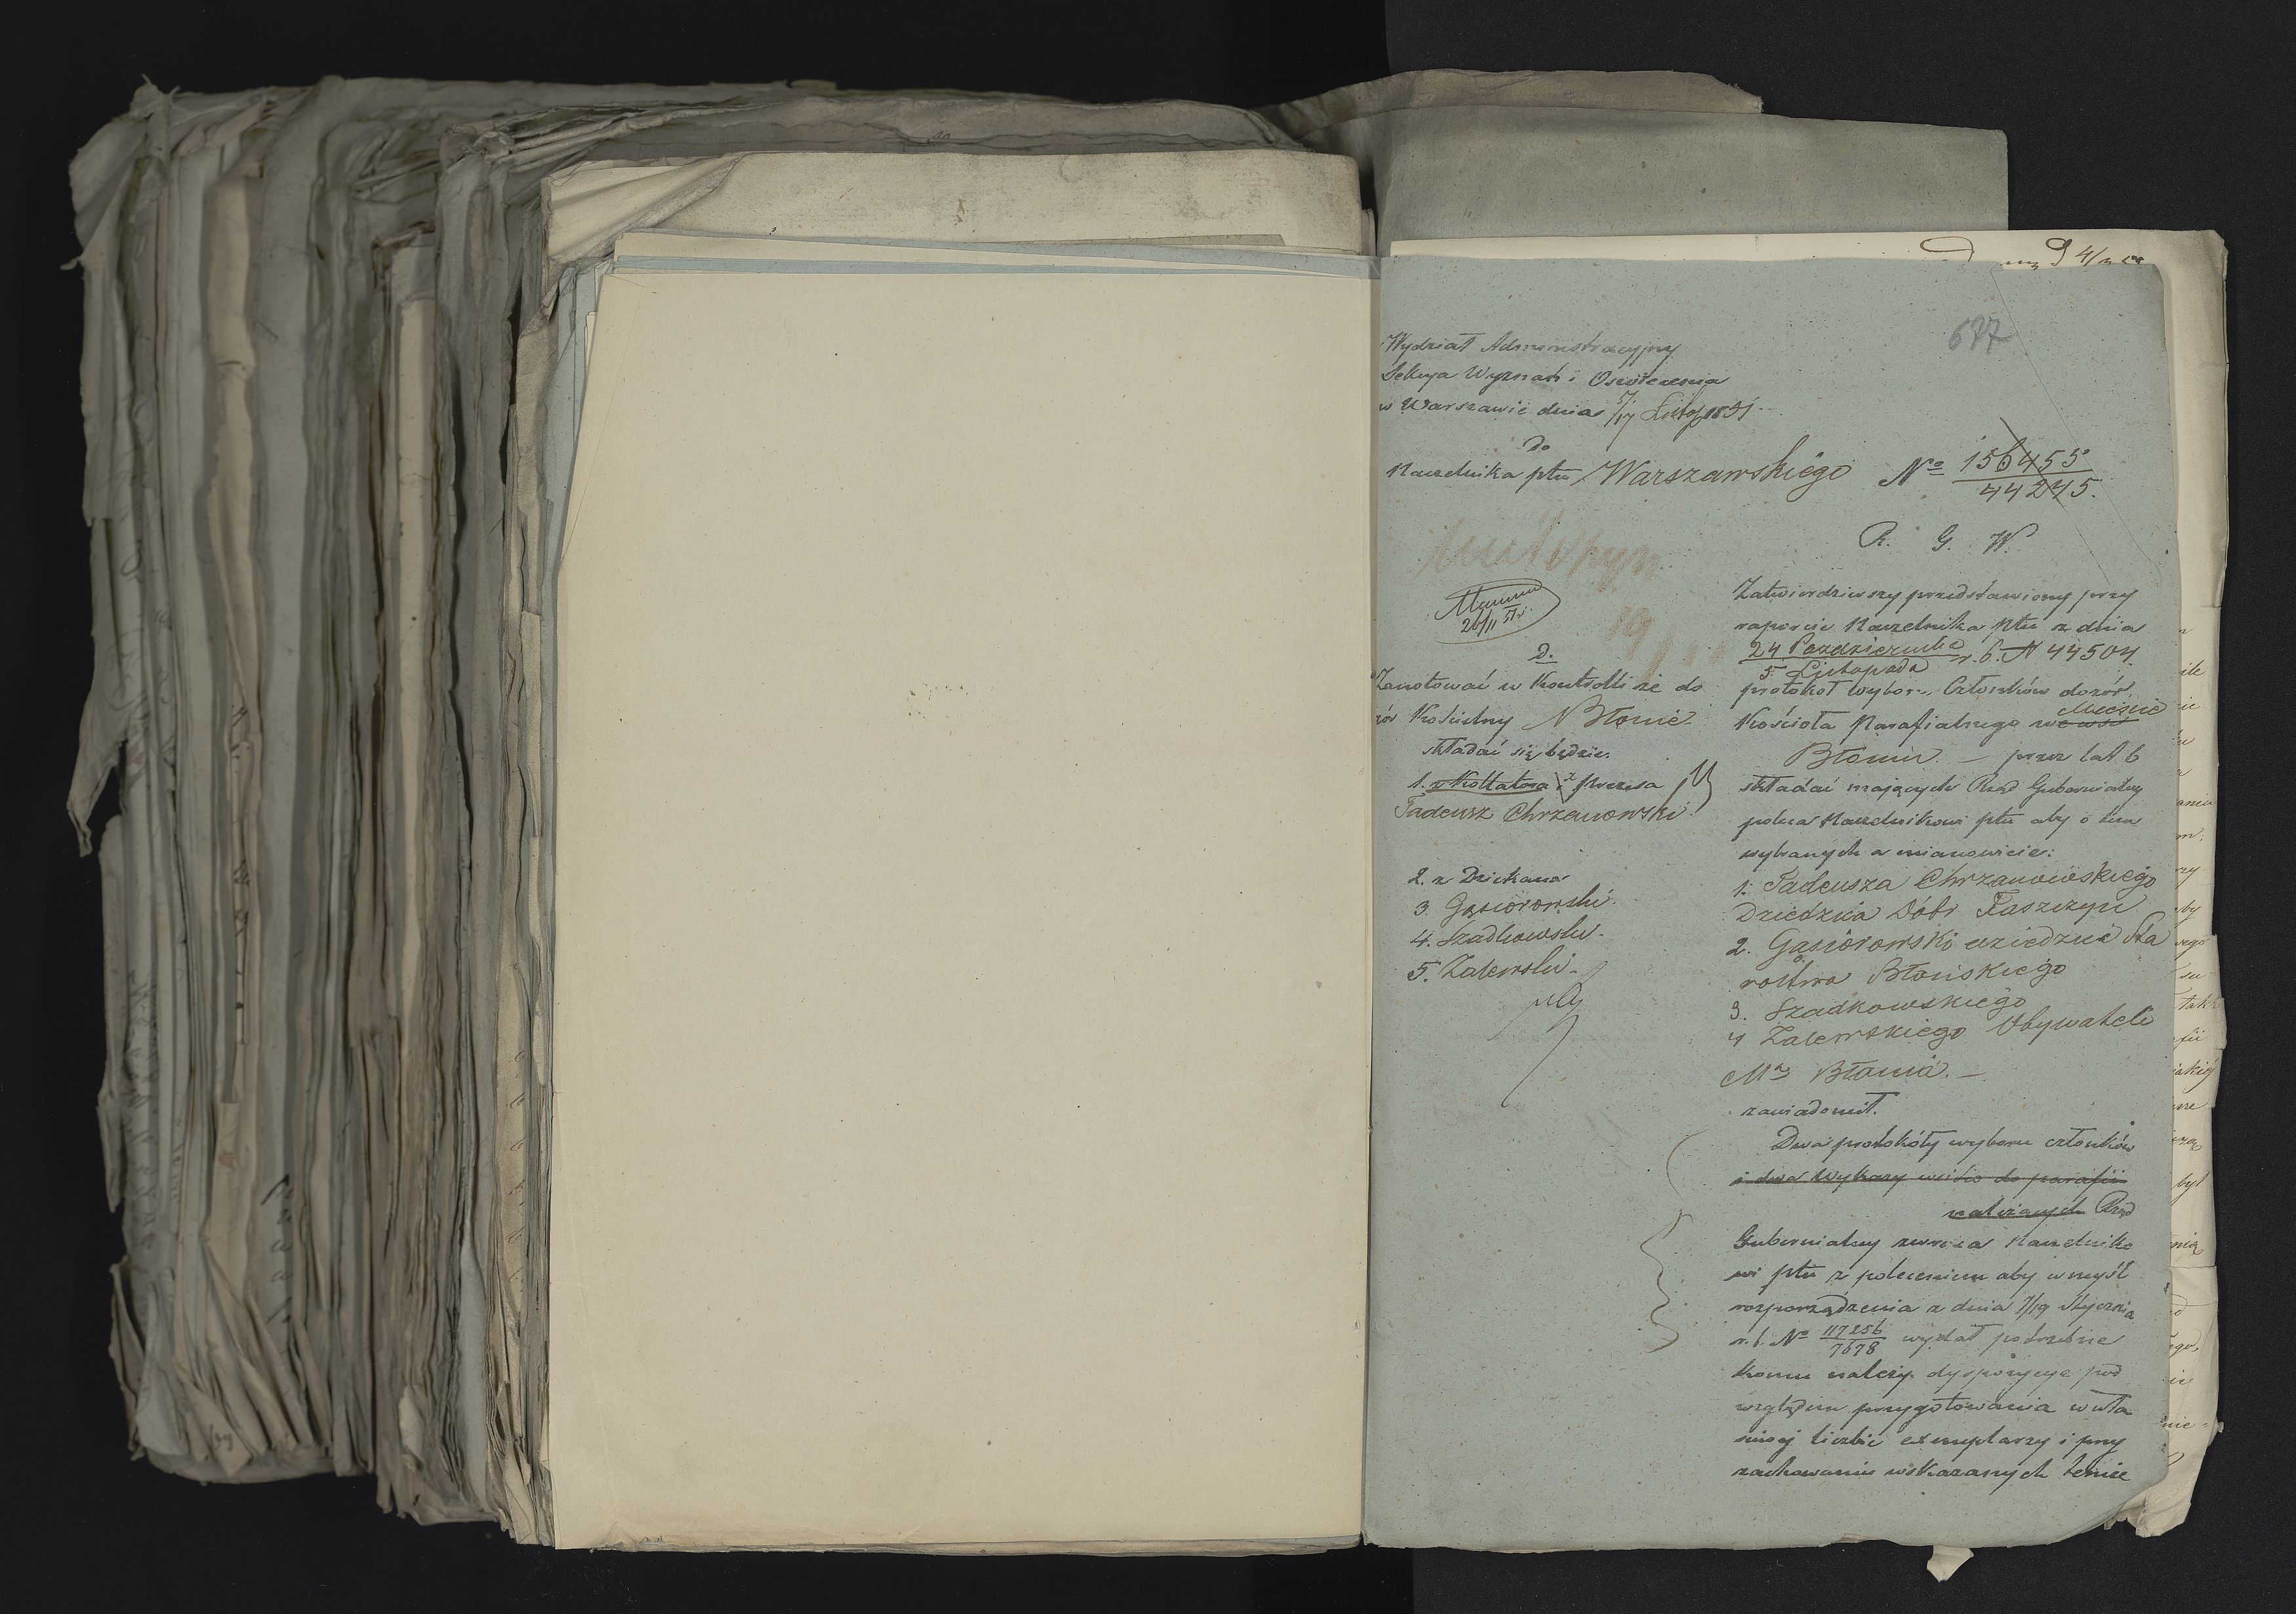 677
Wydział Administracyjny
Sekcya Wyznań i Oświecenia
w Warszawie dnia 5/17 Listop 1851
Do
Naczelnika ptu Warszawskiego
No 156455
44245.
R. G. W.
26/11 51 r.
D.
Zanotować w Kontrolli że do
zór Kościelny Błonie
składać się będzie.
1. z Kollatora i z prezesa
Tadeusz Chrzanowski
2. z Dziekana
3. Gąsiorowski
4. Szadkowski.
5. Zalewski.
Zatwierdziwszy przedstawiony przy
raporcie Naczelnika Ptu z dnia
24 Października
5 Listopada
r. b. N 44504
protokoł wyboru Członków dozór
Kościoła Parafialnego we wsi Mieście
Błoniu. — przez lat 6
składać mających Rząd Gubernialny
poleca Naczelnikowi ptu aby o tem
wybranych a mianowicie:
1. Tadeusza Chrzanowskiego
Dziedzica Dóbr Faszczyce
2. Gąsiorowski dziedzica Sta
rostwa Błońskiego
3. Szadkowskiego
4 Zalewskiego Obywateli
Mta Błonia. —
zawiadomił.
Dwa protokóły wyboru członków
i dwa Wykazy wsiów do parafii
należących Rząd
Gubernialny zwraca Naczelniko
wi ptu z poleceniem aby w myśl
rozporządzenia z dnia 7/19 Stycznia
r. b. No 117256
7678 wydał potrzebne
komu należy dyspozycye pod
względem przygotowania w wła
ściwej liczbie exemplarzy i przy
zachowaniu wskazanych temże